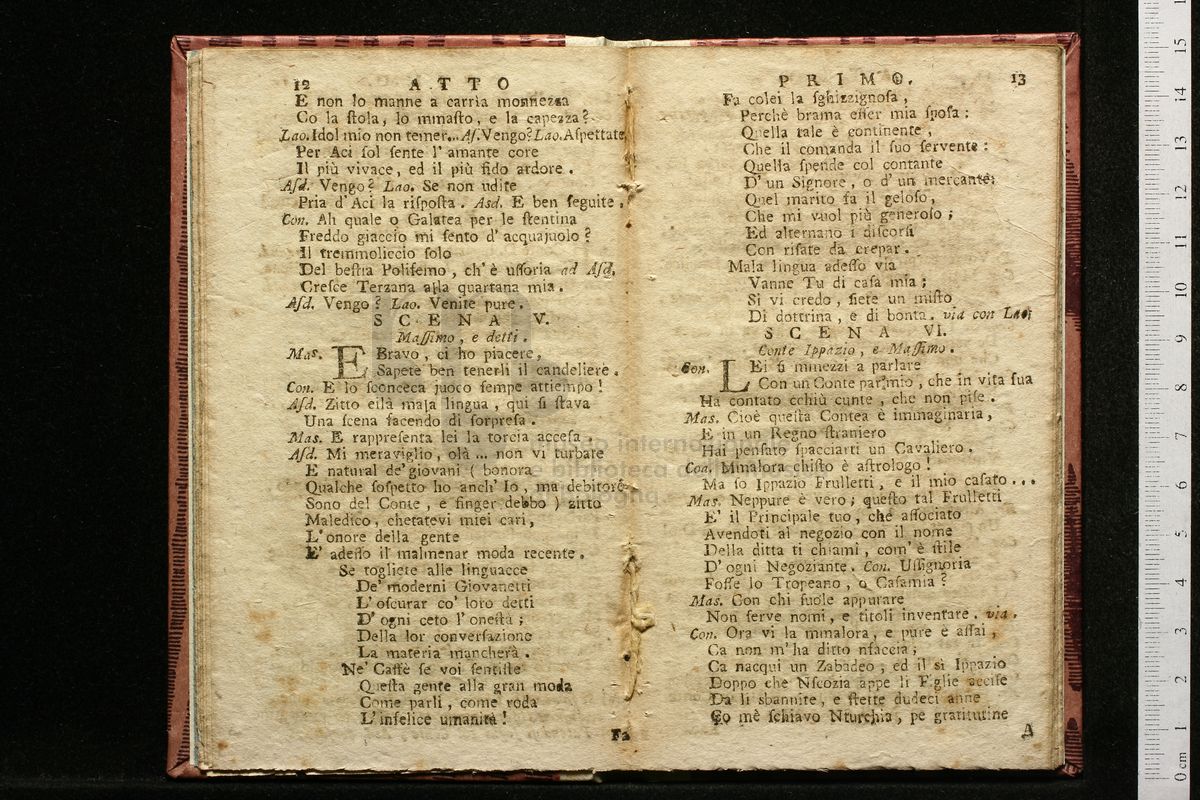 12 ATTO
E non lo manne a carria monnezza
Co la ſtola, lo mmaſto, e la capezza?
Lao. Idol mio non temer... Aſ. Vengo? Lao. Aſpettate
Per Aci ſol ſente l' amante core
Il più vivace, ed il più fido ardore.
Aſd. Vengo? Lao. Se non udite
Pria d' Aci la riſpoſta. Asd. E ben ſeguite,
Con. Ah quale o Galatea per le ſtentina
Freddo giaccio mi ſento d' acquajuolo?
Il tremmoliccio ſolo
Del beſtia Polifemo, ch' è uſſoria ad Aſd.
Creſce Terzana alla quartana mia.
Aſd. Vengo? Lao. Venite pure.
SCENA V.
Maſſimo, e detti.
Mas. E Bravo, ci ho piacere,
Sapete ben tenerli il candeliere.
Con. E lo ſconceca juoco ſempe attiempo!
Aſd. Zitto eilà mala lingua, qui ſi ſtava
Una ſcena facendo di ſorpreſa.
Mas. E rappreſenta lei la torcia acceſa.
Aſd. Mi meraviglio, olà ... non vi turbate
E natural de' giovani ( bonora
Qualche ſoſpetto ho anch' Io, ma debitore
Sono del Conte, e finger debbo ) zitto
Maledico, chetatevi miei cari,
L' onore della gente
E' adeſſo il malmenar moda recente.
Se togliete alle linguacce
De' moderni Giovanetti
L' oſcurar co' loro detti
D' ogni ceto l' oneſtà;
Della lor converſazione
La materia mancherà.
Ne' Caffè ſe voi ſentiſte
Queſta gente alla gran moda
Come parli, come roda
L' infelice umanità!
Fa
PRIMO. 13
Fa colei la ſghizzignoſa,
Perchè brama eſſer mia ſpoſa:
Quella tale è continente,
Che il comanda il ſuo ſervente:
Quella ſpende col contante
D' un Signore, o d' un mercante:
Quel marito fa il geloſo,
Che mi vuol più generoſo;
Ed alternano i diſcorſi
Con riſate da crepar.
Mala lingua adeſſo via
Vanne Tu di caſa mia;
Si vi credo, ſiete un miſto
Di dottrina, e di bonta. via con Lao;
SCENA VI.
Conte Ippazio, e Maſſimo.
Con. LEi ſi mmezzi a parlare
Con un Conte par mio, che in vita ſua
Ha contato cchiù cunte, che non piſe.
Mas. Cioè queſta Contea è immaginaria,
E in un Regno ſtraniero
Hai penſato ſpacciarti un Cavaliero.
Con. Mmalora chiſto è aſtrologo!
Ma ſo Ippazio Frulletti, e il mio caſato ...
Mas. Neppure è vero; queſto tal Frulletti
E' il Principale tuo, che aſſociato
Avendoti al negozio con il nome
Della ditta ti chiami, com' è ſtile
D' ogni Negoziante. Con. Uſſignoria
Foſſe lo Tropeano, o Caſamia?
Mas. Con chi ſuole appurare
Non ſerve nomi, e titoli inventare. via.
Con. Ora vi la mmalora, e pure è aſſai,
Ca non m' ha ditto nfaccia;
Ca nacqui un Zabadeo, ed il si Ippazio
Doppo che Nſcozia appe li Figlie acciſe
Da li sbannite, e ſtette dudeci anne
Co mè ſchiavo Nturchia, pe gratitutine
A